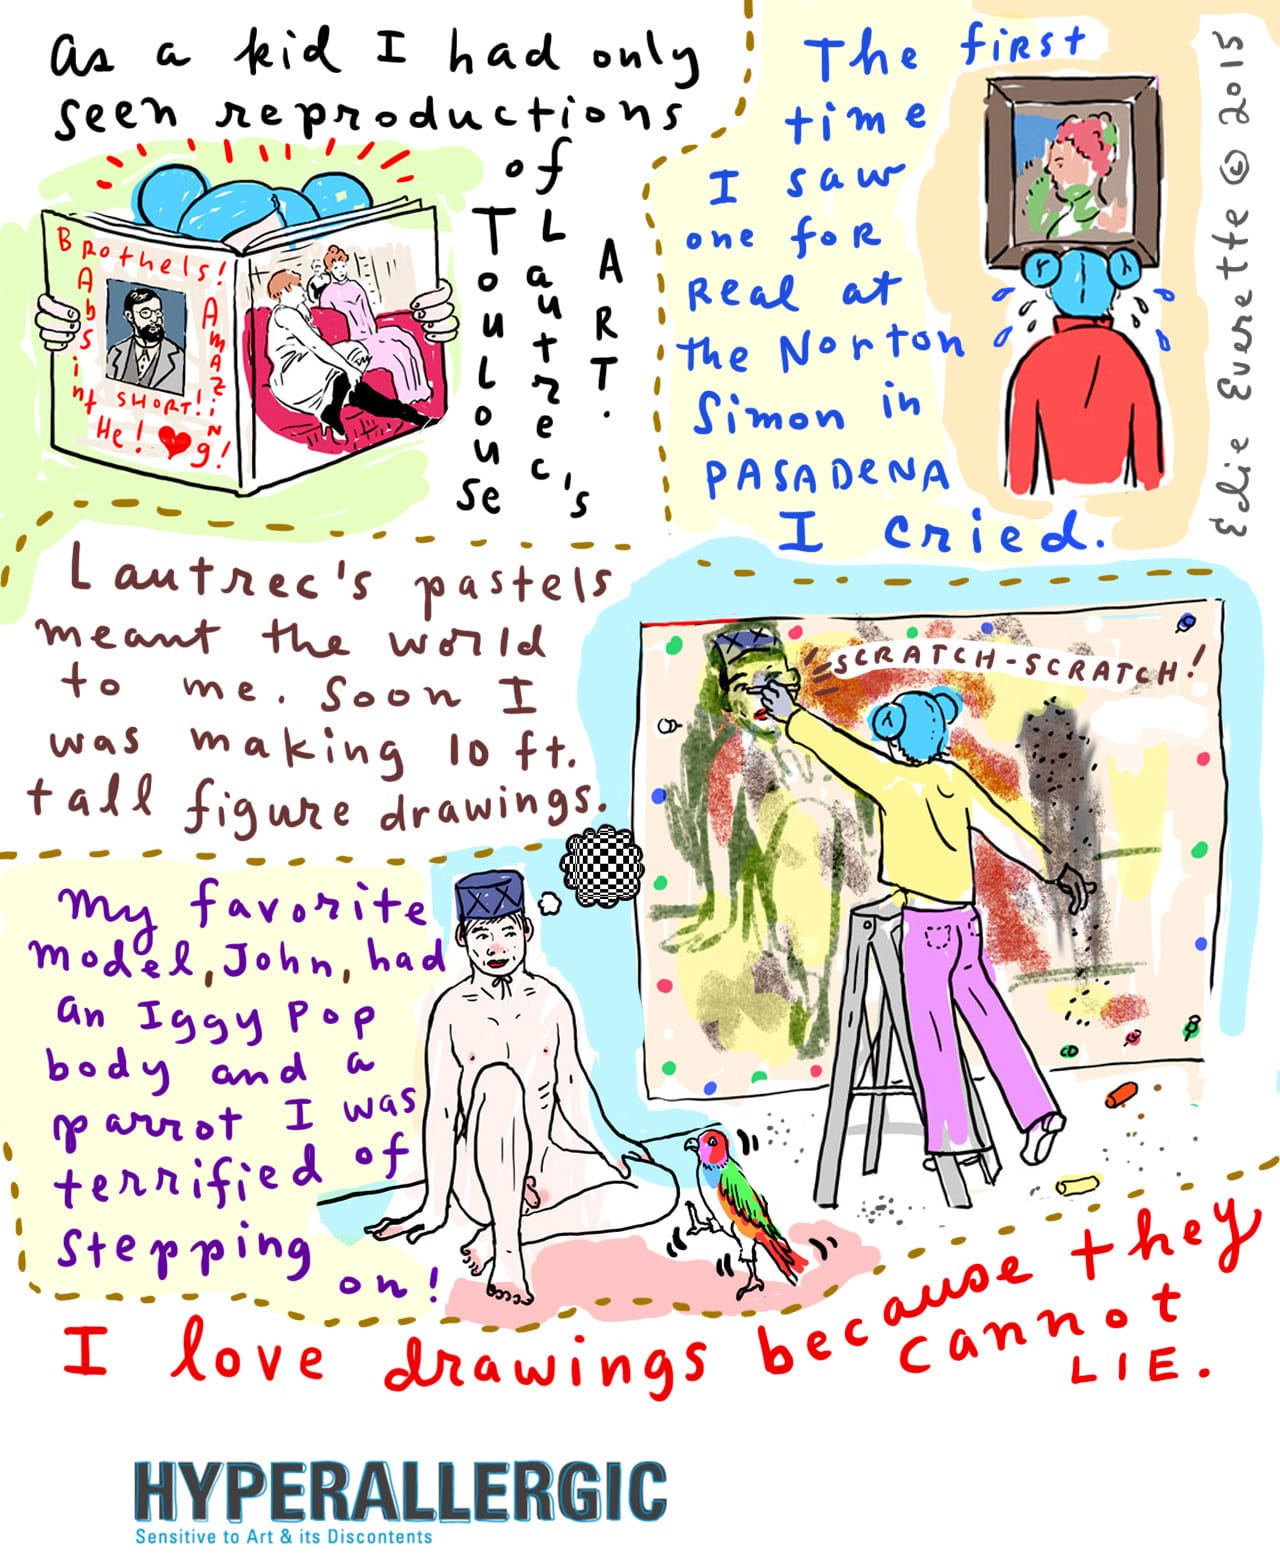 as a kid I had only
seen reproductions
of
Toulouse
Lautrec's
ART.
Brothels!
Absinthe!
Amazing!
SHORT!
The first
time
I saw
one for
Real at
the Norton
Simon in
PASADENA
I cried.
Edie Everette © 2015
Lautrec's pastels
meant the world
to me. Soon I
was making 10 ft.
tall figure drawings.
SCRATCH-SCRATCH!
My favorite
model, John, had
an Iggy Pop
body and a
parrot I was
terrified of
stepping
on!
I love drawings because they
cannot
LIE.
HYPERALLERGIC
Sensitive to Art & its Discontents